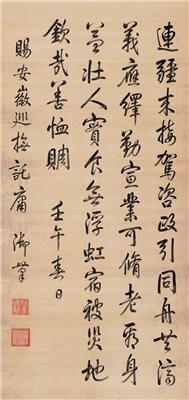 連疆未接駕咨政引同舟共濟
義應繹勤宣業可脩老形身
益壯人實食無浮虹宿被災地
欽哉善恤賙
壬午春日
賜安徽巡撫託庸御筆